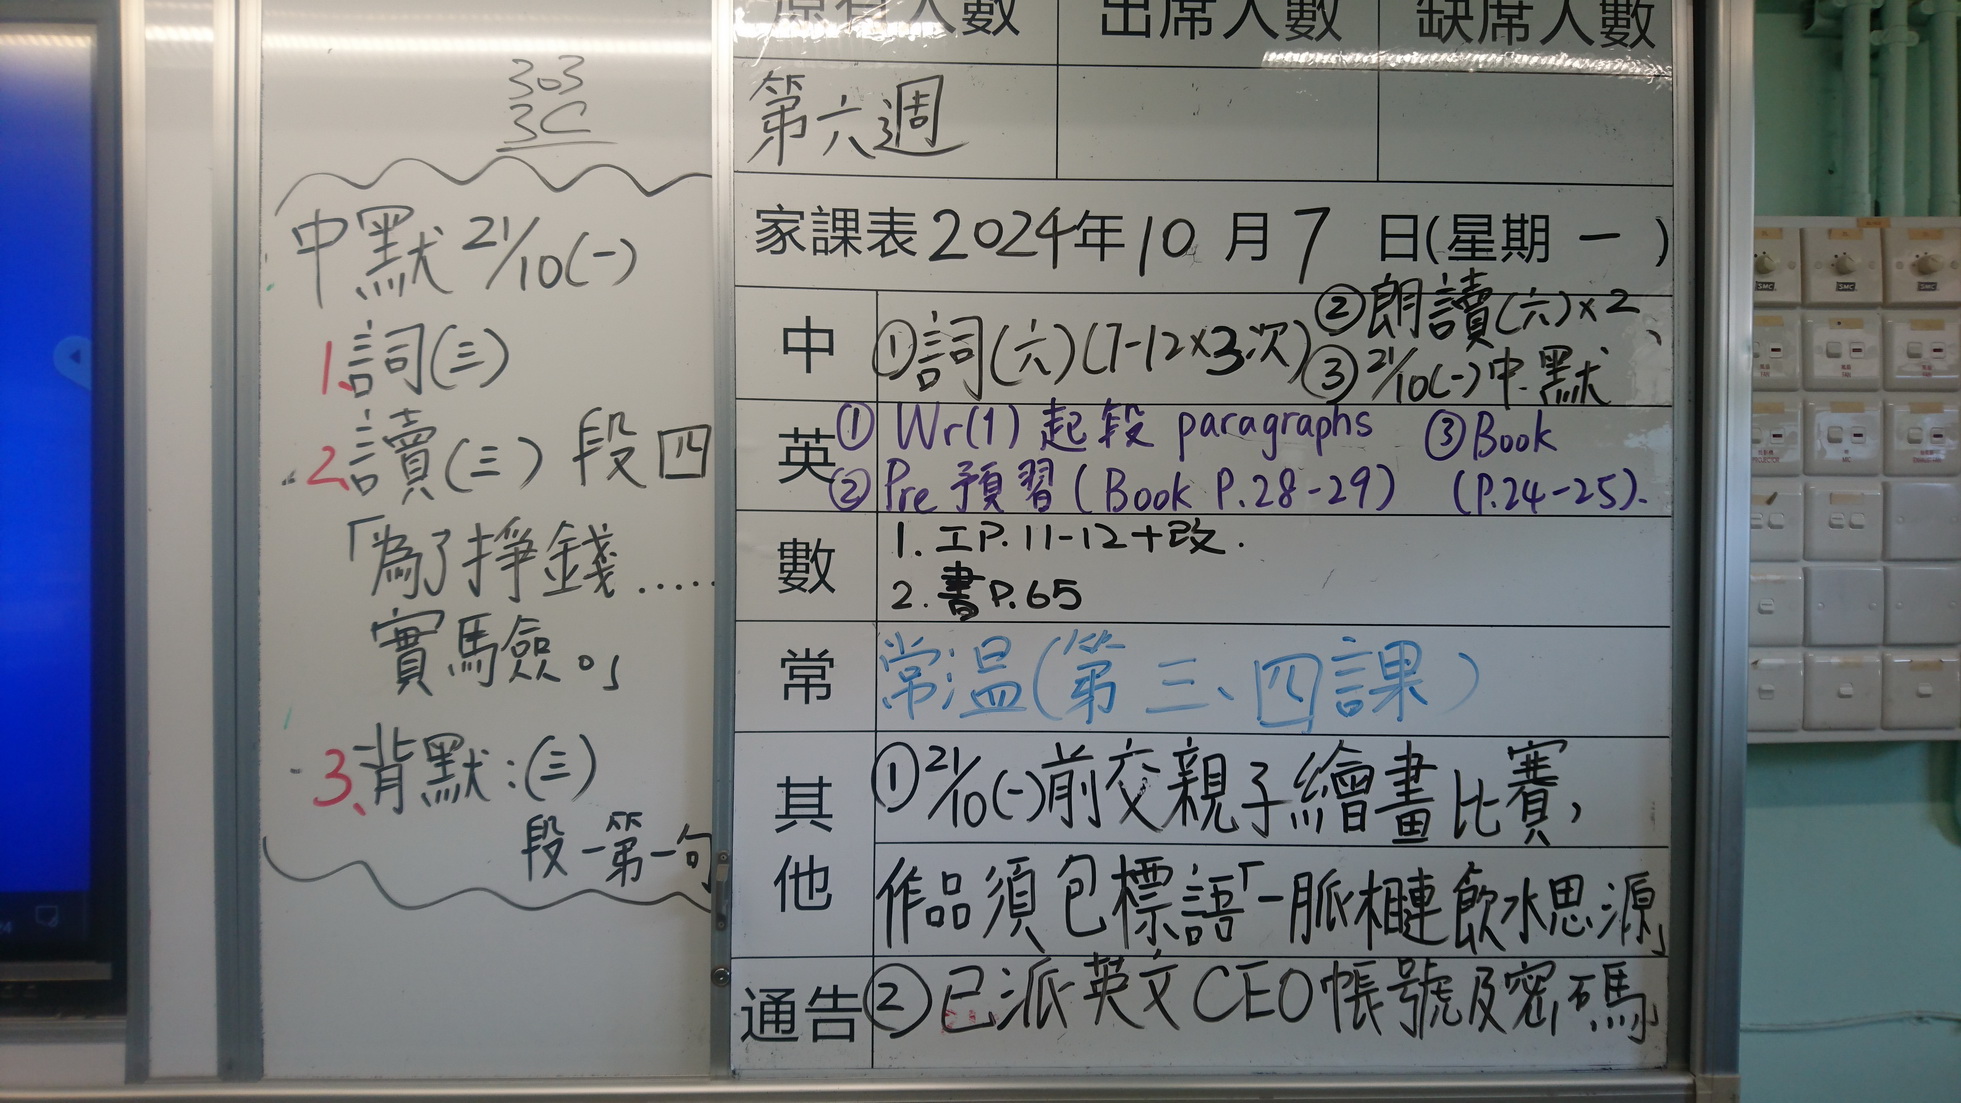 303
3C
中默 21/10(一)
1.詞(三)
2.讀(三) 段四
「為了掙錢.....
實驗。」
3.背默:(三)
段一第一句
原有人數 出席人數 缺席人數
第六週
家課表2024年10月7日(星期一)
中 ①詞(六)(7-12×3次) ②朗讀(六)×2、
③21/10(一)中默
英 ① Wr(1) 起段 paragraphs ③Book
② Pre 預習 (Book P.28-29) (P.24-25).
數 1. 工P.11-12+改.
2. 書P.65
常 常溫(第三、四課)
其他 ①21/10(一)前交親子繪畫比賽,
作品須包標語「一脈相連飲水思源」
通告 ②已派英文CEO帳號及密碼